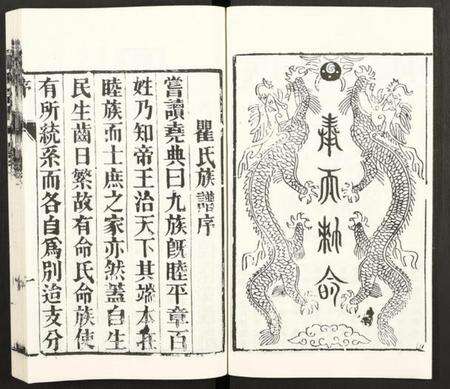 奉天勅命
瞿氏族譜序
嘗讀堯典曰九族旣睦平章百
姓乃知帝王治天下其端本在
睦族而士庶之家亦然蓋自生
民生齒日繁故有命氏命族使
有所統系而各自爲別迨支分
序